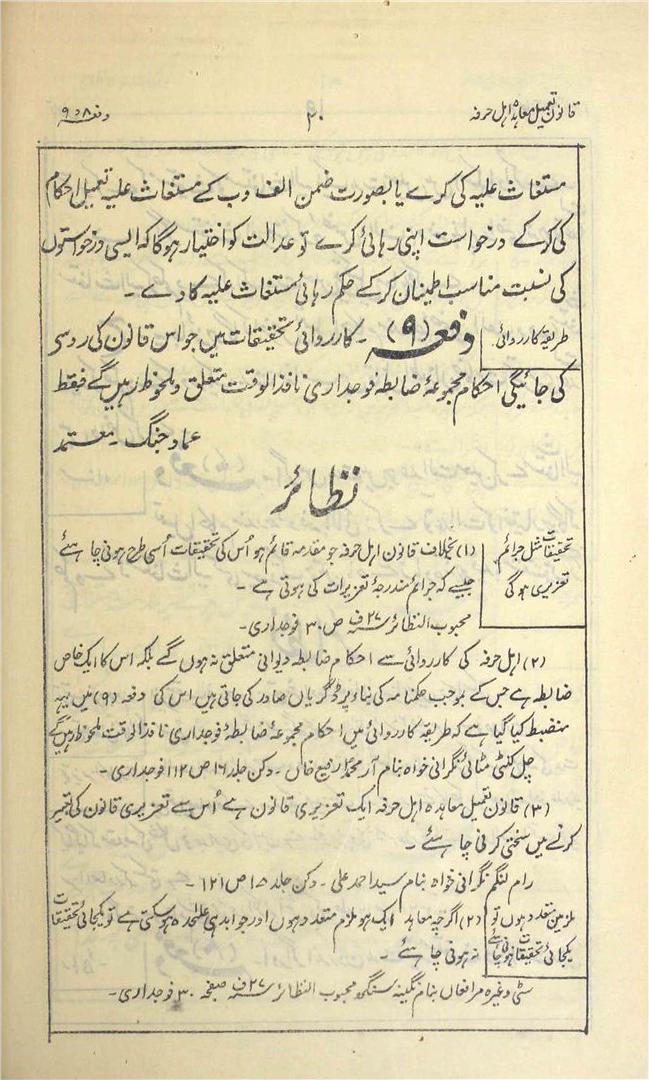 قانون تعمیل معاہدہ اہل حرفہ
۳۰
دفعہ ۸ و ۹
مستغاث علیہ کی کرے یا بصورت ضمن الف و ب کے مستغاث علیہ تعمیل احکام
کی کر کے درخواست اپنی رہائی کرے تو عدالت کو اختیار ہوگا کہ ایسی درخواستوں
کی نسبت مناسب اطمینان کر کے حکم رہائی مستغاث علیہ کا دے ۔
طریقہ کارروائی.
دفعہ (۹) ۔ کارروائی تحقیقات میں جو اس قانون کی روسی
کی جائیگی احکام مجموعۂ ضابطہ فوجداری نافذ الوقت متعلق و ملحوظ رہیں گے فقط
عماد جنگ ۔ معتمد
نظائر
تحقیقات مثل جرائم
تعزیری ہوگی
(۱) بخلاف قانون اہل حرفہ جو مقدمہ قائم ہو اُس کی تحقیقات اُسی طرح ہونی چاہئے
جیسے کہ جرائم مندرجۂ تعزیرات کی ہوتی ہے ۔
محبوب النظائر ۲۷ ف ص ۳۰ فوجداری ۔
(۲) اہل حرفہ کی کارروائی سے احکام ضابطہ دیوانی متعلق نہ ہوں گے بلکہ اس کا ایک خاص
ضابطہ ہے جس کے بموجب حکمنامہ کی بناء پر ڈگریاں صادر کی جاتی ہیں اس کی دفعہ (۹) میں یہہ
منضبط کیا گیا ہے کہ طریقہ کارروائی میں احکام مجموعۂ ضابطۂ فوجداری نافذ الوقت ملحوظ رہیں گے
نگرانی خواہ بنام محمد رفیع خاں ۔ دکن جلد ۱۶ ص ۱۱۲ فوجداری ۔
(۳) قانون تعمیل معاہدہ اہل حرفہ ایک تعزیری قانون ہے اُس سے تعزیری قانون کی تعبیر
کرنے میں سختی کرنی چاہئے ۔
رام لنگم نگرانی خواہ بنام سید احمد علی ۔ دکن جلد ۱۵ ص ۱۲۱ ۔
ملزمین متعدد ہوں تو
یکجائی تحقیقات ہونی چاہئے
(۲) اگرچہ معاہدہ ایک ہو ملزم متعدد ہوں اور جوابدہی علٰحدہ ہو سکتی ہے تو یکجائی تحقیقات
نہ ہونی چاہئے ۔
سٹی وغیرہ مرافعان بنام نگینہ سنگہ محبوب النظائر ۲۷ ف صفحہ ۳۰ فوجداری ۔